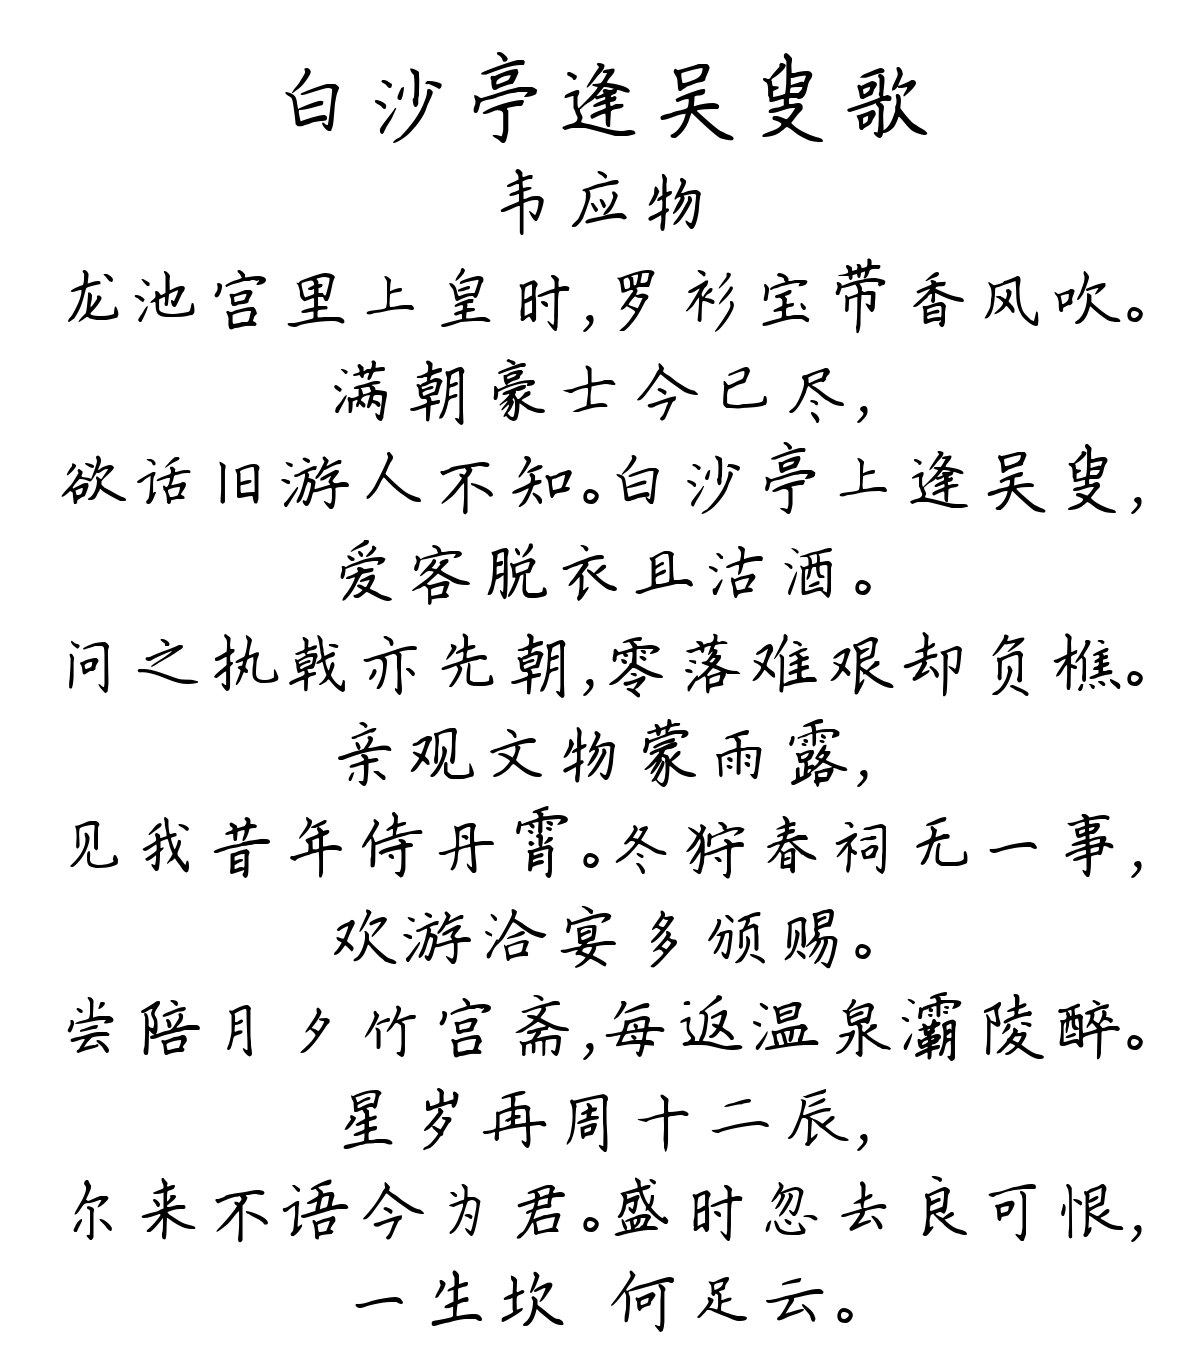 白沙亭逢吴叟歌
韦应物
龙池宫里上皇时,罗衫宝带香风吹。
满朝豪士今已尽,
欲话旧游人不知。白沙亭上逢吴叟,
爱客脱衣且沽酒。
问之执戟亦先朝,零落难艰却负樵。
亲观文物蒙雨露,
见我昔年侍丹霄。冬狩春祠无一事,
欢游洽宴多颁赐。
尝陪月夕竹宫斋,每返温泉灞陵醉。
星岁再周十二辰,
尔来不语今为君。盛时忽去良可恨,
一生坎 何足云。